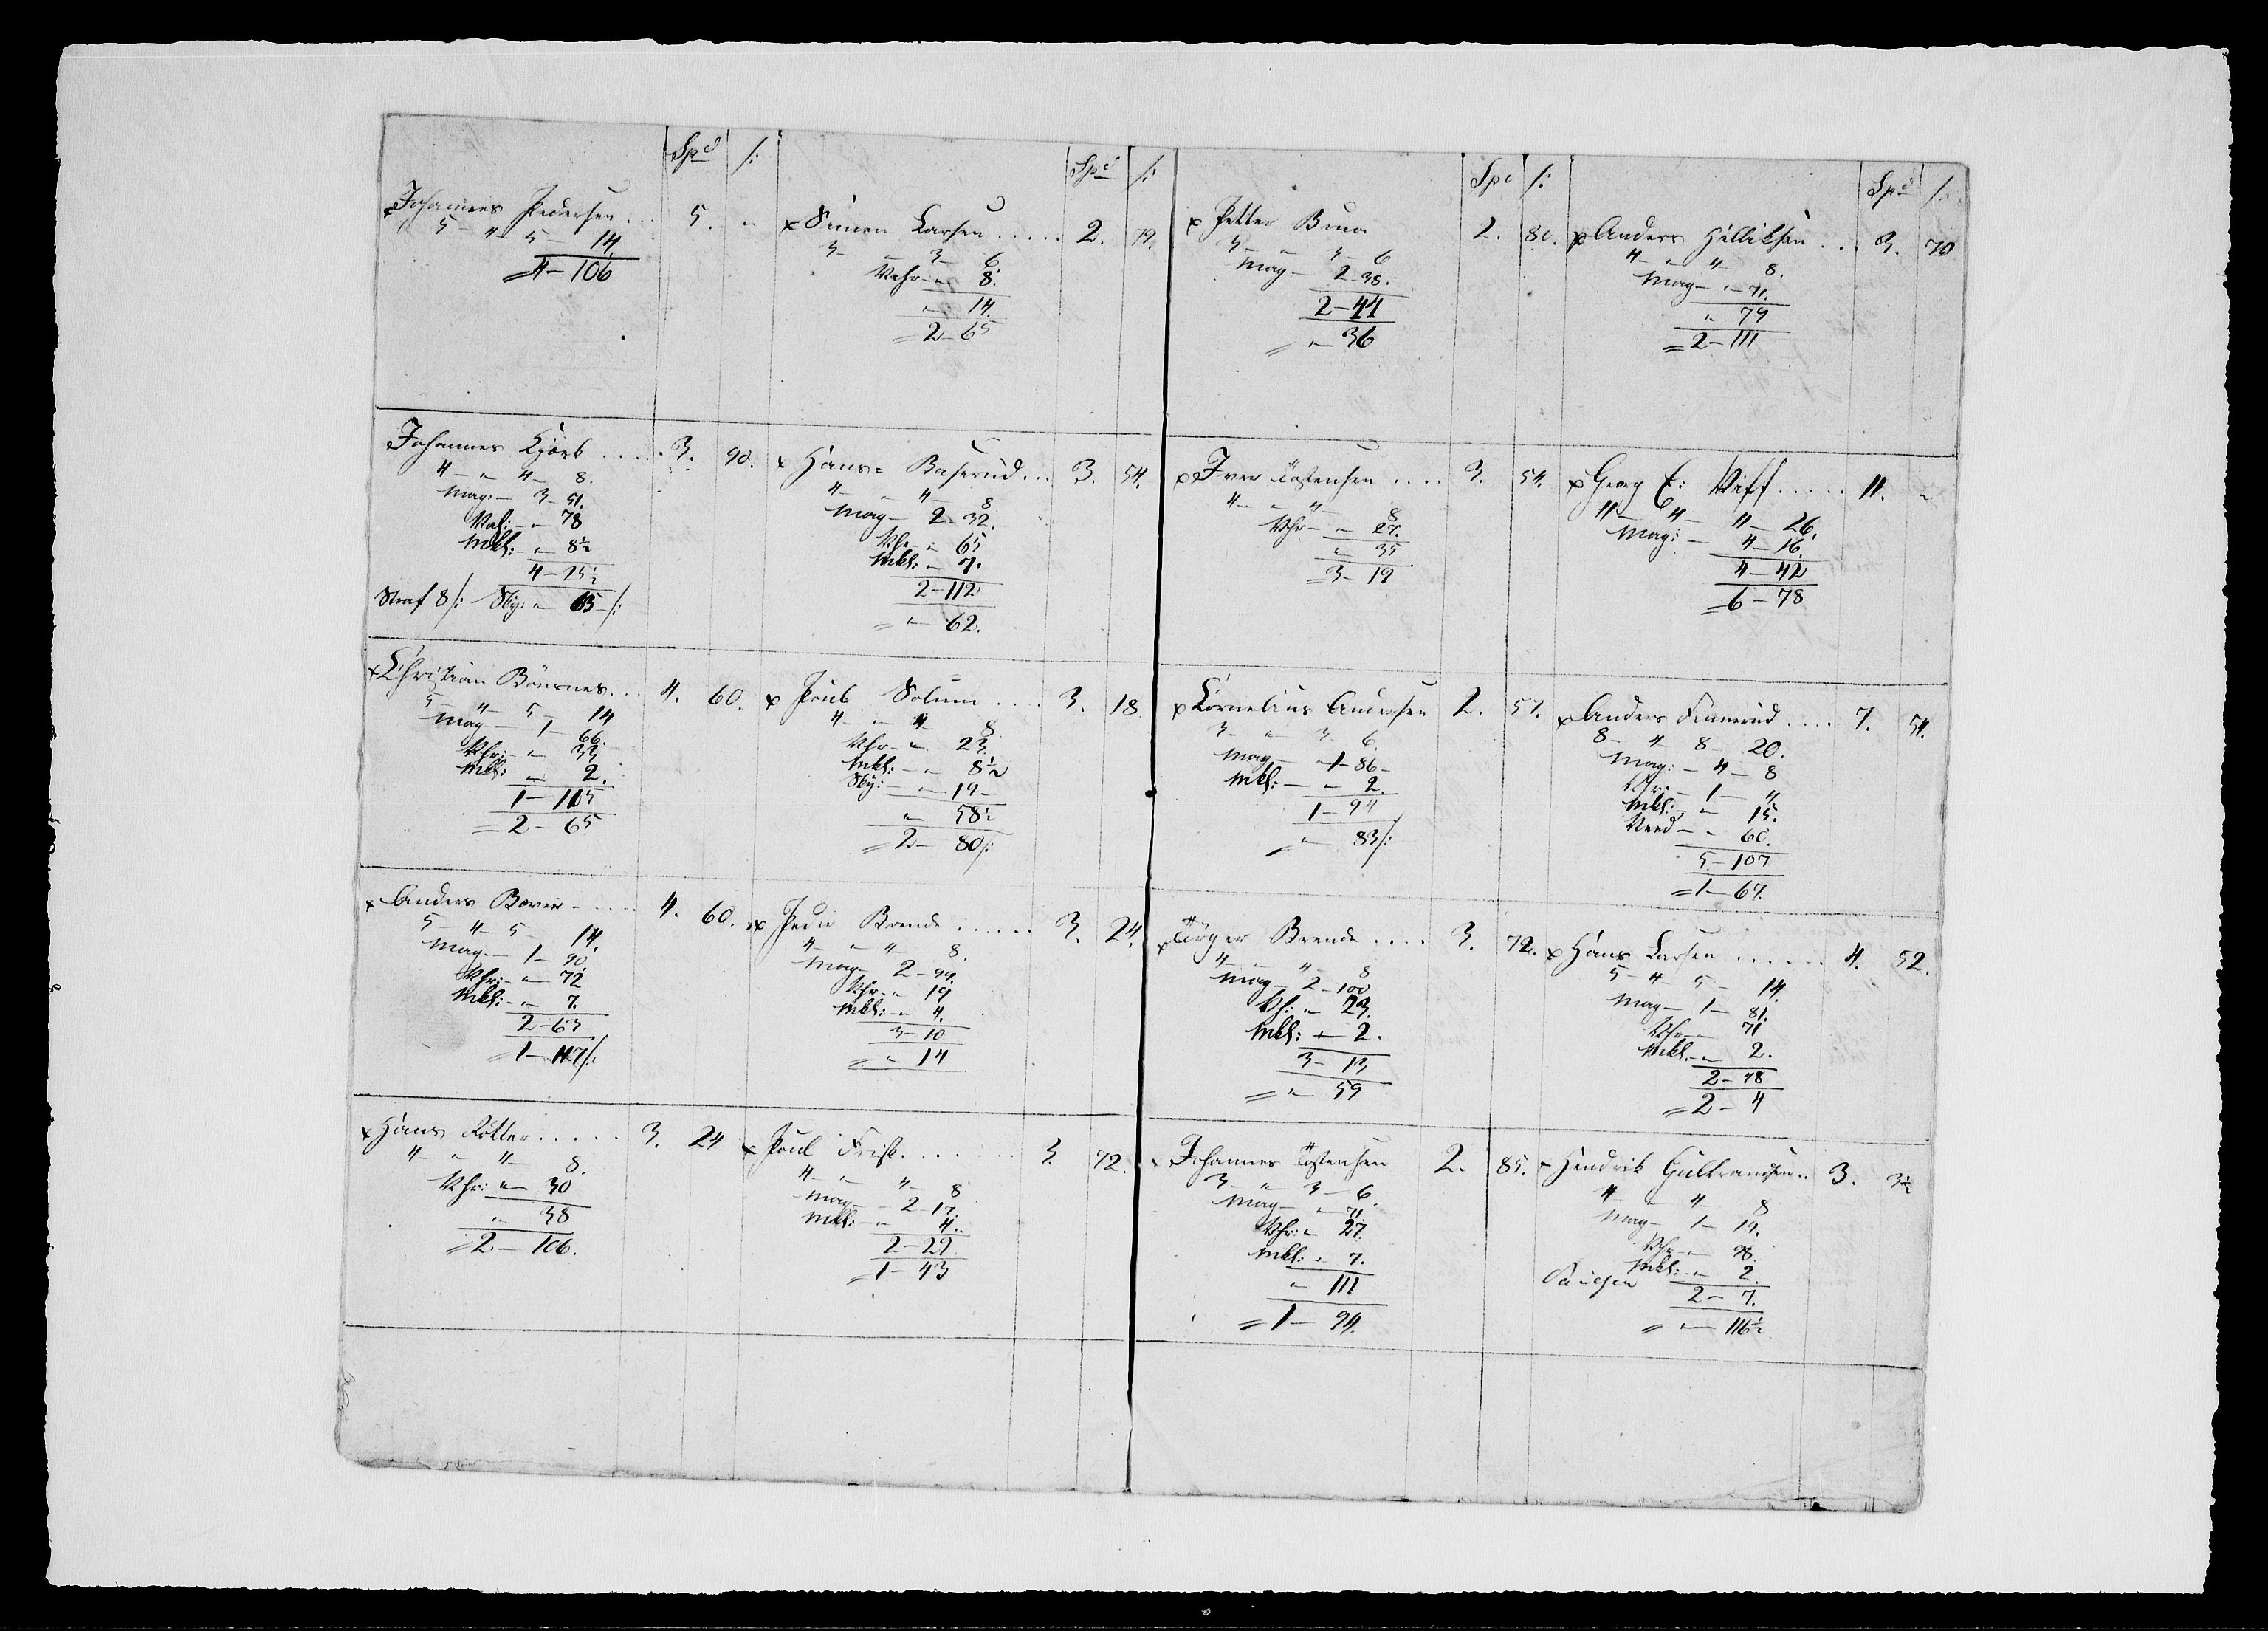 Spd /: Spd /: Spd /: Spd /:
x Johannes Pedersen... 5. "
5 - 4 - 5 - 14.
= 4 - 106
x Simen Larsen..... 2. 79.
3 - " 3 - 6.
Vahr - " 8.
" 14.
= 2 - 65
x Petter Bruun 2. 80.
3 - " 3 - 6
Mag - 2 - 38.
2 - 44
= " - 36
x Anders Helliksen... 3. 70
4 - " 4 - 8.
Mag - " - 71.
" 79
= 2 - 111
Johannes Kjørb..... 3. 90.
4 - " 4 - 8.
Mag: - 3 - 51.
Vah: - " 78
Mkl: - " 8½
4 - 25½
Straf 8 /: Sky: " 63 /:
x Hans Baserud... 3. 54.
4 - " 4 - 8
Mag - 2 - 32.
Vhr - " 65
Mkl: - " 7.
2 - 112
= " - 62.
x Iver Tostensen.... 3. 54.
4 - " 4 - 8
Vhr - " 27.
" 35
= 3 - 19
x Georg E: Wiff..... 11. "
11 - 6/4 - 11 - 26.
Mag: - 4 - 16.
4 - 42
= 6 - 78
x Christian Bønsnes... 4. 60.
5 - 4 - 5 - 14
Mag - 1 - 66.
Vhr: - " 33
Mkl: - " 2.
1 - 115
= 2 - 65
x Poul Solum.... 3. 18
4 - " 4 - 8
Vhr - " 23.
Mkl: - " 8½
Sky: - " 19 -
" 58½
= 2 - 80 /:
x Cornelius Andersen 2. 57.
3 - " 3 - 6.
Mag - 1 - 86 -
Mkl: - " 2.
1 - 94
= " 83 /:
x Anders Finnerud.... 7. 54.
8 - 4 - 8 - 20.
Mag: - 4 - 8
Vhr: - 1 - 4.
Mkl: - " 15.
Veed - " 60.
5 - 107
= 1 - 67.
x Anders Borei..... 4. 60.
5 - 4 - 5 - 14.
Mag - 1 - 90.
Vhr: - " 72
Mkl: - " 7.
2 - 63
= 1 - 117 /:
x Peder Brende...... 3. 24.
4 - " 4 - 8.
Mag - 2 - 99.
Vhr - " 19
Mkl: - " 4.
3 - 10
= " 14
x Tørger Brende.... 3. 72.
4 - " 4 - 8
Mag - 2 - 100
Vh: - " 23.
Mkl: - " 2.
3 - 13
= " 59
x Hans Larsen...... 4. 52.
5 - 4 - 5 - 14.
Mag - 1 - 81.
Vhr - " 71
Mkl. - " 2.
2 - 48
= 2 - 4
x Hans Kotter..... 3. 24
4 - " 4 - 8.
Vhr: " - 30
" 38
= 2 - 106.
x Poul Frisk....... 3. 72.
4 - " 4 - 8
Mag - 2 - 17.
Mkl: - " 4.
2 - 29.
= 1 - 43
- Johannes Tostensen 2. 85.
3 - " 3 - 6.
Mag - " 71.
Vhr: " 27.
Mkl: " 7.
" 111
= 1 - 94.
- Hendrik Gulbrandsen.. 3. 3½
4 - " 4 - 8
Mag - 1 - 19.
Vhr - " 98.
Mkl: " 2.
2 - 7.
= " - 116½